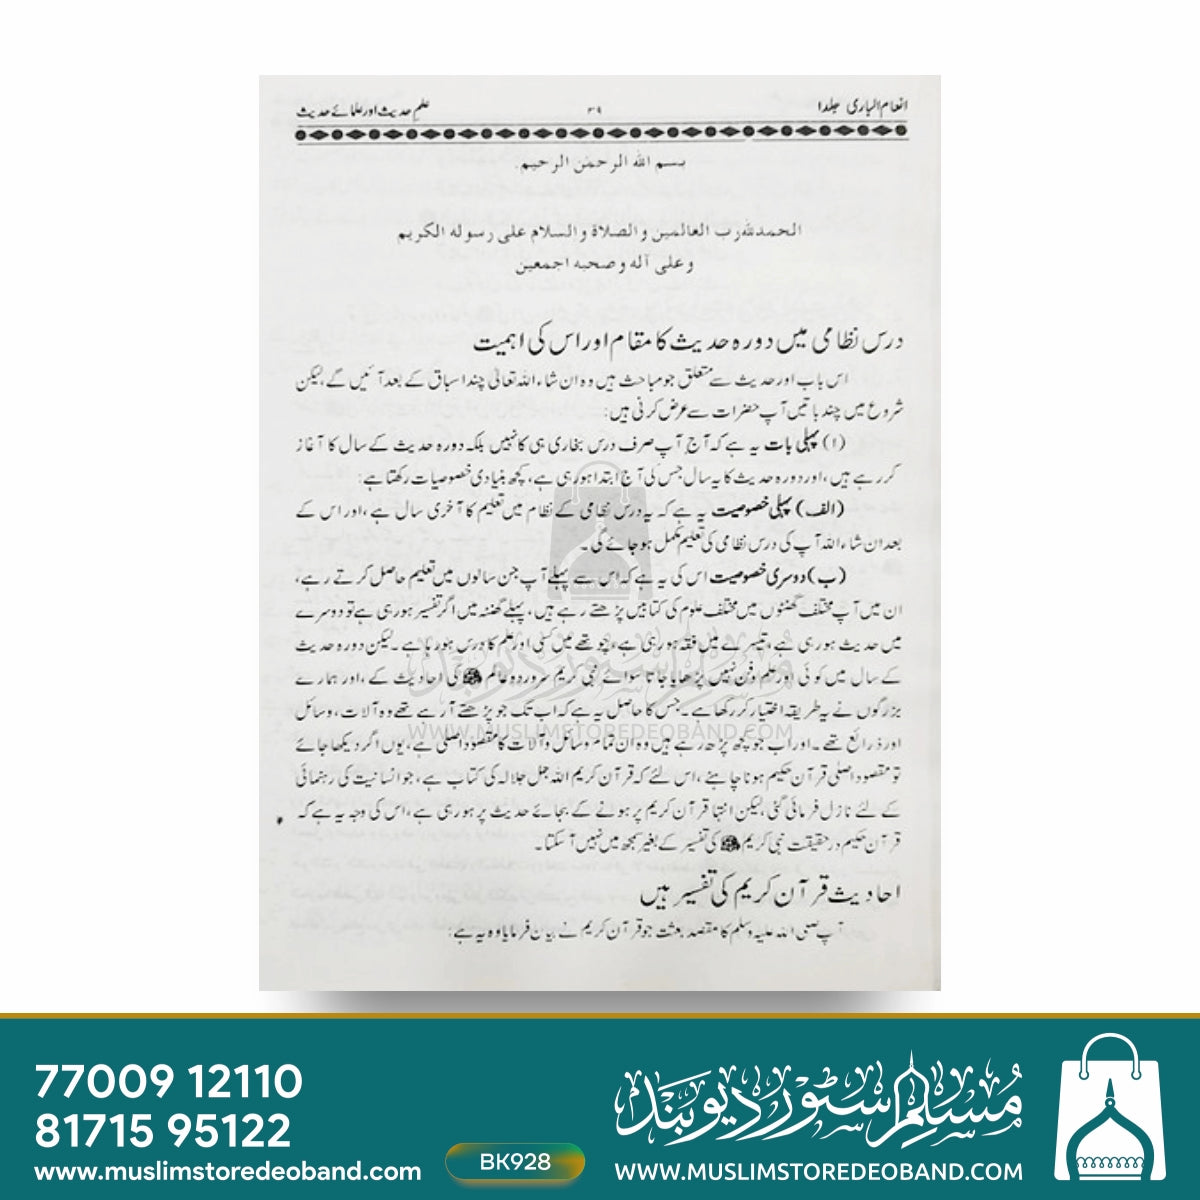 انعام الباری جلد ۱
۳۹
علم حدیث اور علمائے حدیث
بسم الله الرحمن الرحیم.
الحمدلله رب العالمین و الصلاة و السلام علی رسوله الکریم
و علی آله و صحبه اجمعین
درس نظامی میں دورہ حدیث کا مقام اور اس کی اہمیت
اس باب اور حدیث سے متعلق جو مباحث ہیں وہ ان شاء اللہ تعالیٰ چند اسباق کے بعد آئیں گے، لیکن
شروع میں چند باتیں آپ حضرات سے عرض کرنی ہیں:
(۱) پہلی بات یہ ہے کہ آج آپ صرف درس بخاری ہی کا نہیں بلکہ دورہ حدیث کے سال کا آغاز
کر رہے ہیں، اور دورہ حدیث کا یہ سال جس کی آج ابتدا ہو رہی ہے، کچھ بنیادی خصوصیات رکھتا ہے:
(الف) پہلی خصوصیت یہ ہے کہ یہ درس نظامی کے نظام میں تعلیم کا آخری سال ہے، اور اس کے
بعد ان شاء اللہ آپ کی درس نظامی کی تعلیم مکمل ہو جائے گی۔
(ب) دوسری خصوصیت اس کی یہ ہے کہ اس سے پہلے آپ جن سالوں میں تعلیم حاصل کرتے رہے،
ان میں آپ مختلف گھنٹوں میں مختلف علوم کی کتابیں پڑھتے رہے ہیں، پہلے گھنٹہ میں اگر تفسیر ہو رہی ہے تو دوسرے
میں حدیث ہو رہی ہے، تیسرے میں فقہ ہو رہی ہے، چوتھے میں کسی اور علم کا درس ہو رہا ہے۔ لیکن دورہ حدیث
کے سال میں کوئی اور علم وفن نہیں پڑھایا جاتا سوائے نبی کریم سرور دو عالم ﷺ کی احادیث کے، اور ہمارے
بزرگوں نے یہ طریقہ اختیار کر رکھا ہے۔ جس کا حاصل یہ ہے کہ اب تک جو پڑھتے آرہے تھے وہ آلات، وسائل
اور ذرائع تھے۔ اور اب جو کچھ پڑھ رہے ہیں وہ ان تمام وسائل و آلات کا مقصود اصلی ہے، یوں اگر دیکھا جائے
تو مقصود اصلی قرآن حکیم ہونا چاہئے، اس لئے کہ قرآن کریم اللہ جل جلالہ کی کتاب ہے، جو انسانیت کی رہنمائی
کے لئے نازل فرمائی گئی، لیکن انتہا قرآن کریم پر ہونے کے بجائے حدیث پر ہو رہی ہے، اس کی وجہ یہ ہے کہ
قرآن حکیم در حقیقت نبی کریم ﷺ کی تفسیر کے بغیر سمجھ میں نہیں آسکتا۔
احادیث قرآن کریم کی تفسیر ہیں
آپ صلی اللہ علیہ وسلم کا مقصد بعثت جو قرآن کریم نے بیان فرمایا وہ یہ ہے:
مسلم سٹور دیوبند
WWW.MUSLIMSTOREDEOBAND.COM
77009 12110
81715 95122
www.muslimstoredeoband.com
BK928
مسلم سٹور دیوبند
WWW.MUSLIMSTOREDEOBAND.COM